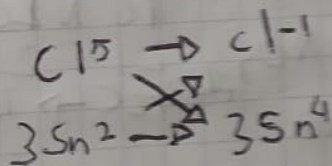 Cl⁵ → Cl-1
3Sn² → 3Sn⁴